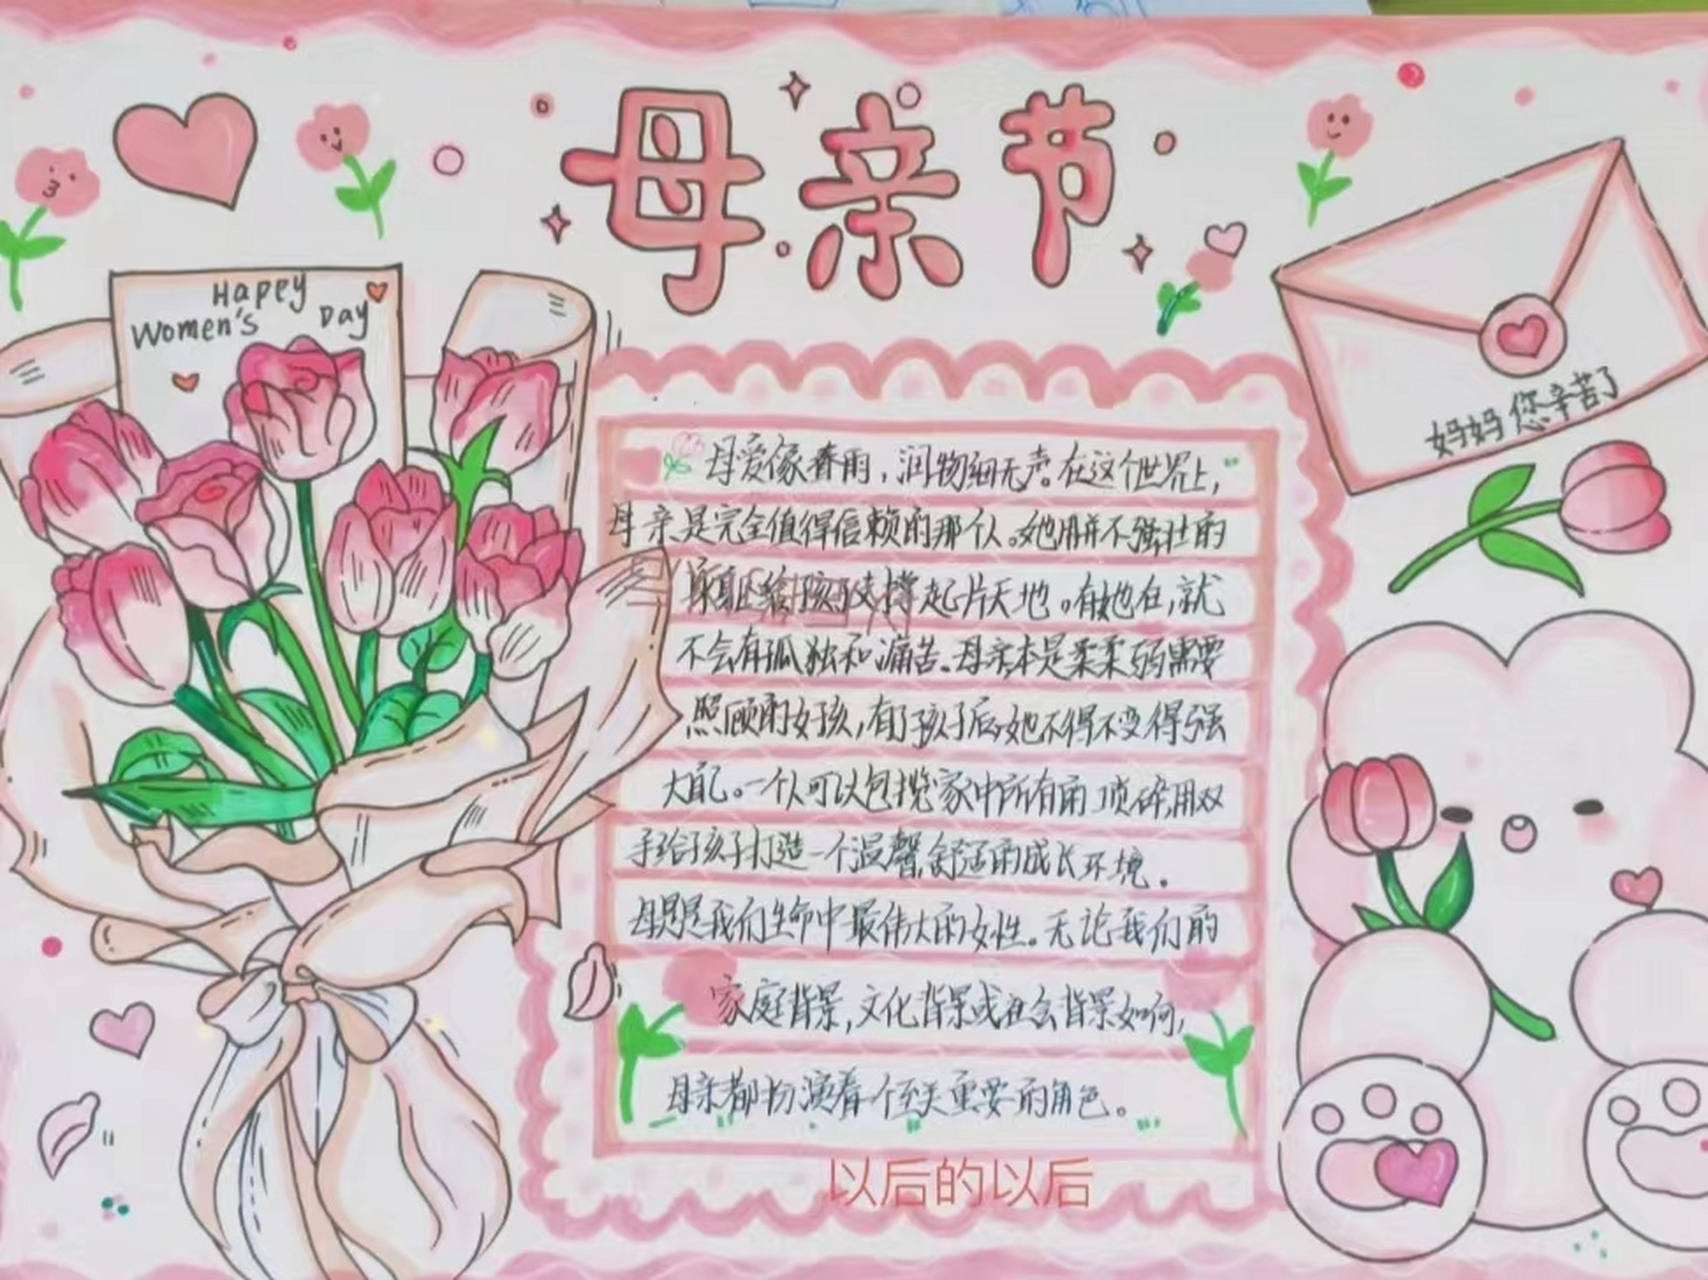 母亲节
Happy
Women's Day
妈妈您辛苦了
母爱像春雨，润物细无声。在这个世界上，
母亲是完全值得信赖的那个人。她用并不强壮的
身躯给孩子支撑起一片天地。有她在，就
不会有孤独和痛苦。母亲本是柔柔弱需要
照顾的女孩，有了孩子后，她不得不变得强
大自己。一个人可以包揽家中所有的琐碎，用双
手给孩子打造一个温馨舒适的成长环境。
母亲是我们生命中最伟大的女性。无论我们的
家庭背景，文化背景或社会背景如何，
母亲都扮演着一个至关重要的角色。
以后的以后